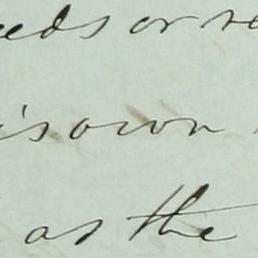 eeds or re
is own
as the